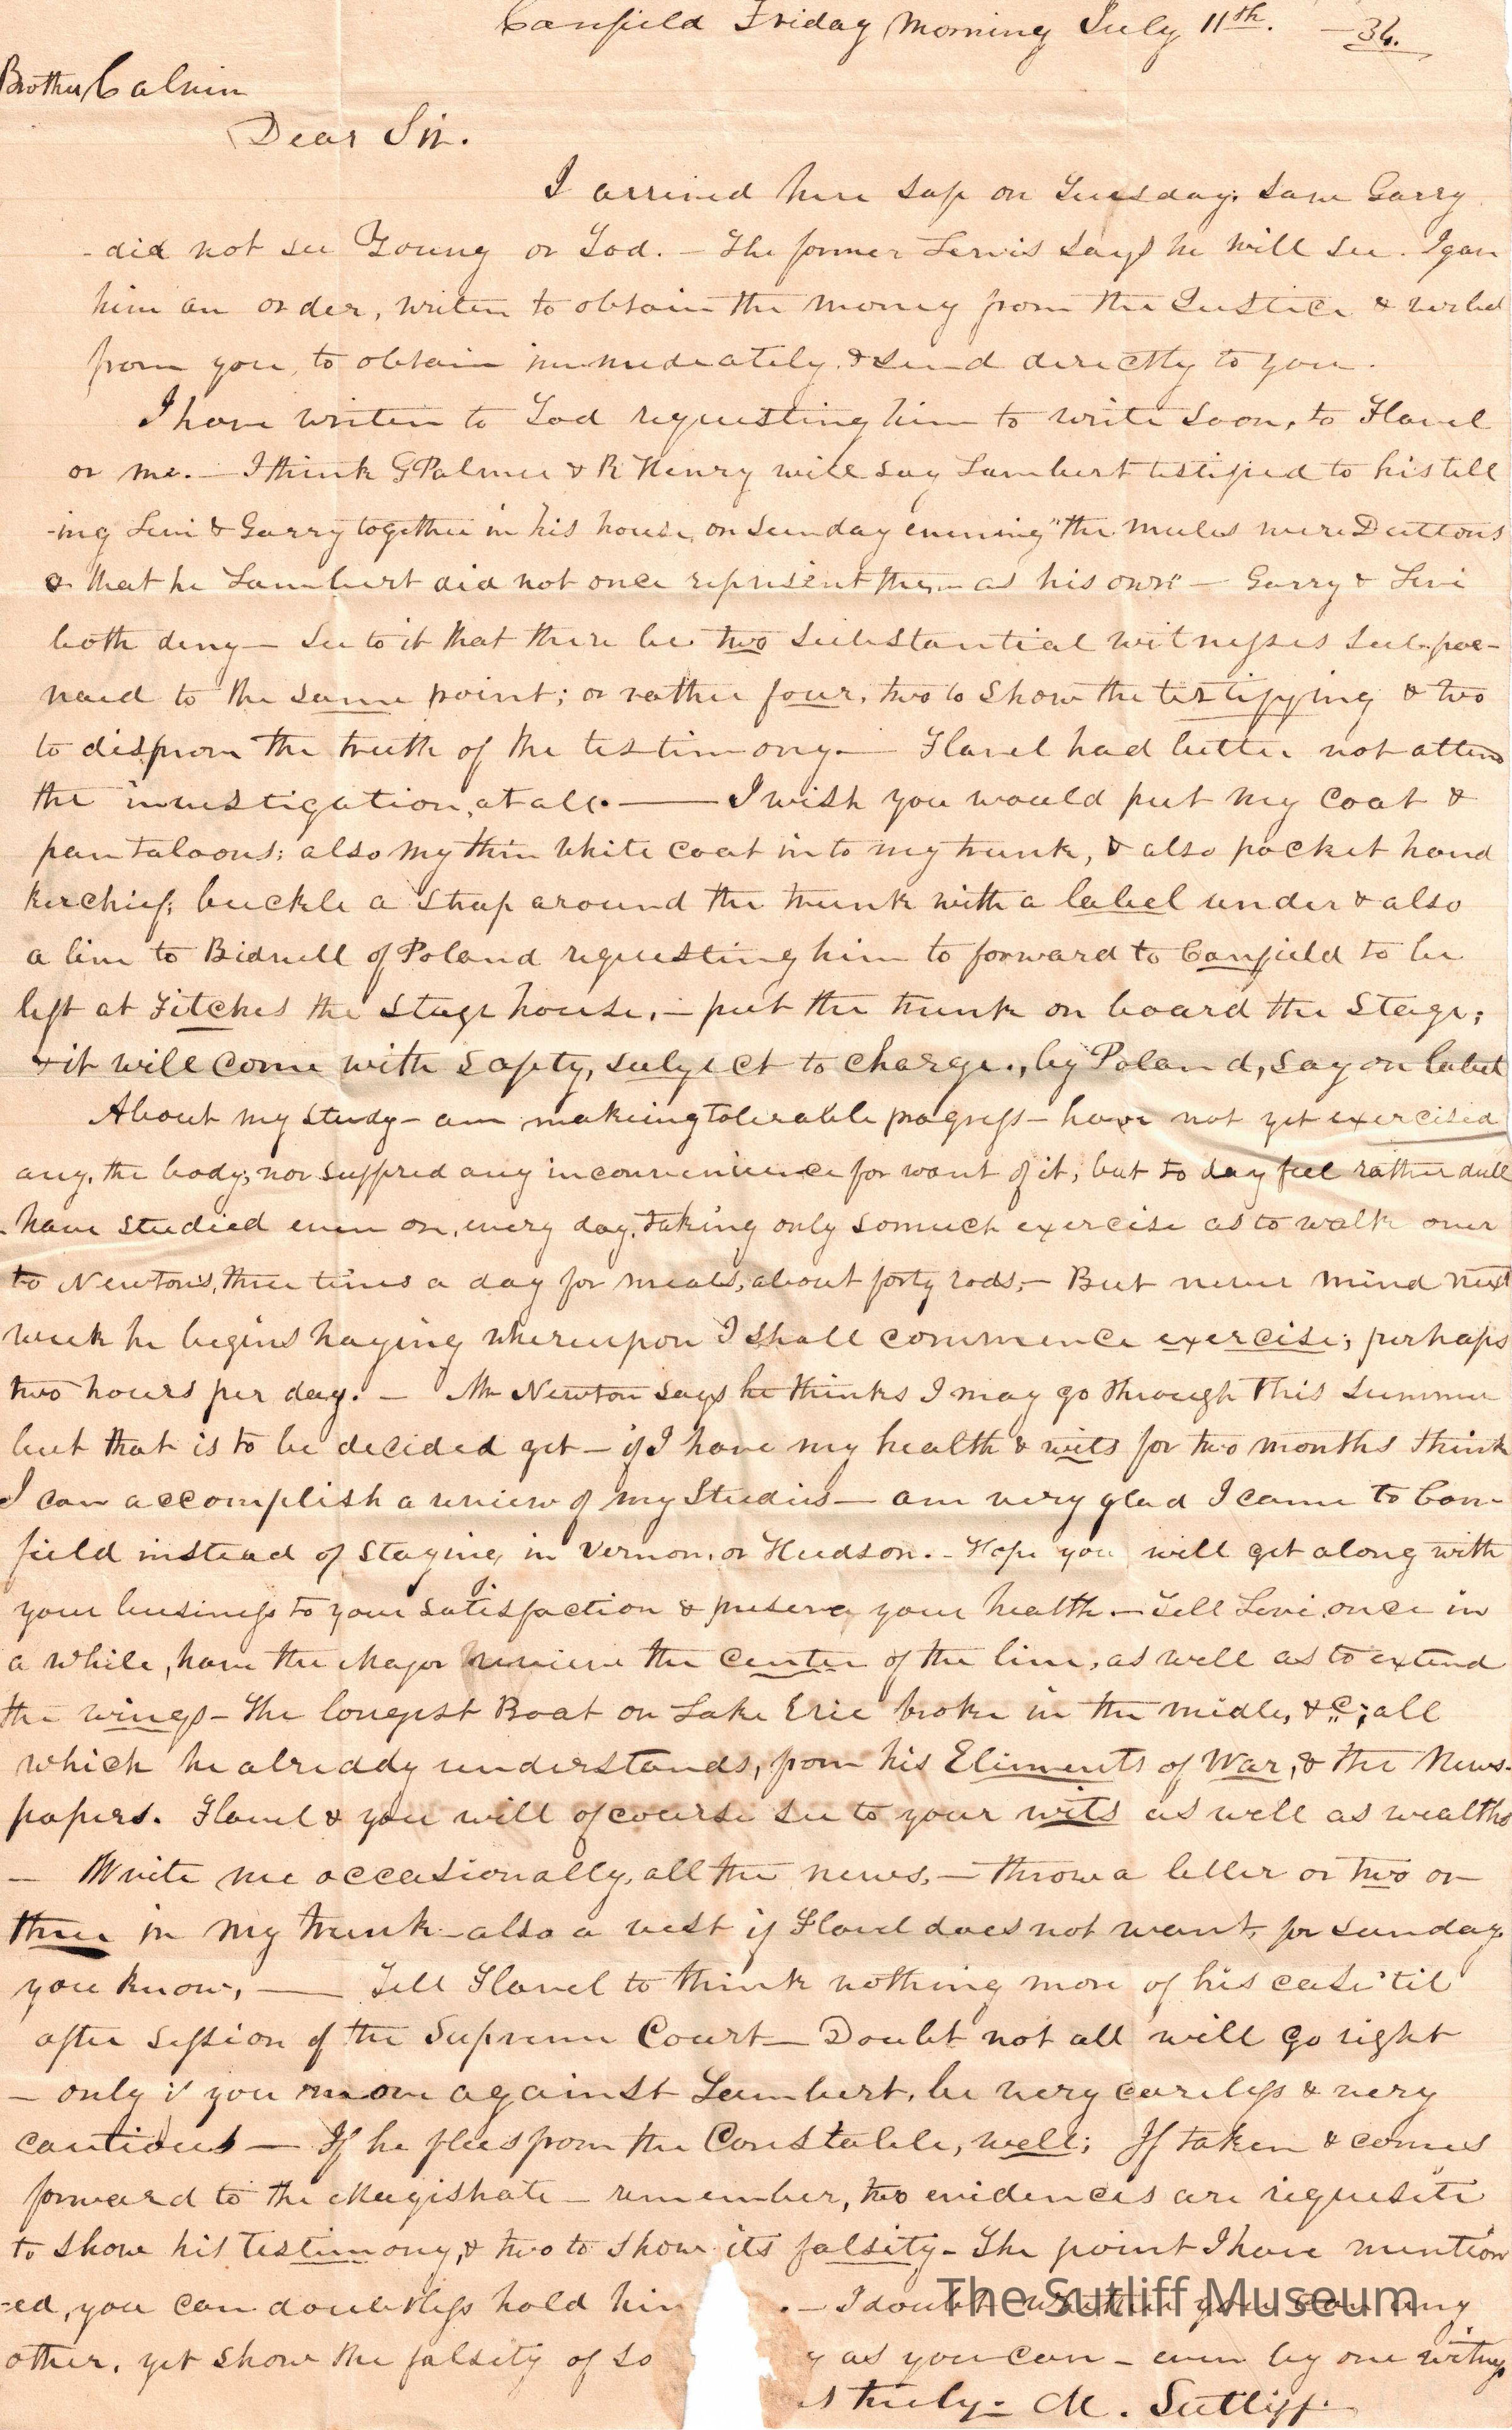 Canfield Friday Morning July 11th. — 34.
Brother Calvin
Dear Sir.
I arrived here safe on Tuesday. saw Garry
- did not see Young or Tod. - The former Lewis says he will see. I gave
him an order, writen to obtain the money from the Justice & verbal
from you, to obtain immediately. & send directly to you.
I have writen to Tod requesting him to write soon, to Flavel
or me. — I think G Palmer & R Henry will say Lambert testified to his tell
-ing Levi & Garry together in his house, on Sunday evening "the mules were Duttons
& that he Lambert did not once represent them as his own" — Garry & Levi
both deny — See to it that there be two substantial witnesses sub-poe-
naed to the same point; or rather four, two to show the testifying & two
to disprove the truth of the testimony. — Flavel had better not attend
the investigation, at all. — I wish you would put my coat &
pantaloons; also my thin white coat in to my trunk, & also pocket hand
kerchief; buckle a strap around the trunk with a label under & also
a line to Bidwell of Poland requesting him to forward to Canfield to be
left at Fitches the stage house. — put the trunk on board the stage;
& it will come with safety, subject to charge., by Poland, say on label
About my study - am makeing tolerable progress - have not yet exercised
any, the body; nor suffered any inconvenience for want of it, but to day feel rather dull
- have studied even on, every day. taking only somuch exercise as to walk over
to Newton's, three times a day for meals, about forty rods. — But never mind next
week he begins haying whereupon I shall commence exercise; perhaps
two hours per day. — Mr Newton says he thinks I may go through this summer
but that is to be decided yet — if I have my health & wits for two months think
I can accomplish a review of my studies — am very glad I came to Can-
field instead of staying in Vernon, or Hudson. - Hope you will get along with
your business to your satisfaction & preserve your health. — Tell Levi, once in
a while, have the Major review the center of the line, as well as to extend
the wings - The longest Boat on Lake Erie broke in the midle, &c; all
which he alreddy understands, from his Eliments of War, & the News-
papers. Flavel & you will of course see to your wits as well as wealths
— Write me occasionally, all the news, — throw a letter or two or
three in my trunk - also a vest if Flavel does not want, for Sunday
you know, — Tell Flavel to think nothing more of his case 'til
after session of the Supreme Court — Doubt not all will go right
— only if you move against Lambert, be very careless & very
cautious — If he flees from the Constable, well; If taken & comes
forward to the Magistrate — remember, two evidences are requisite
to show his testimony, & two to show its falsity - The point I have mention
-ed, you can doubtless hold him . — I doubt whether you can any
other. yet show the falsity of so y as you can — even by one witness
s truly - M. Sutliff.
The Sutliff Museum